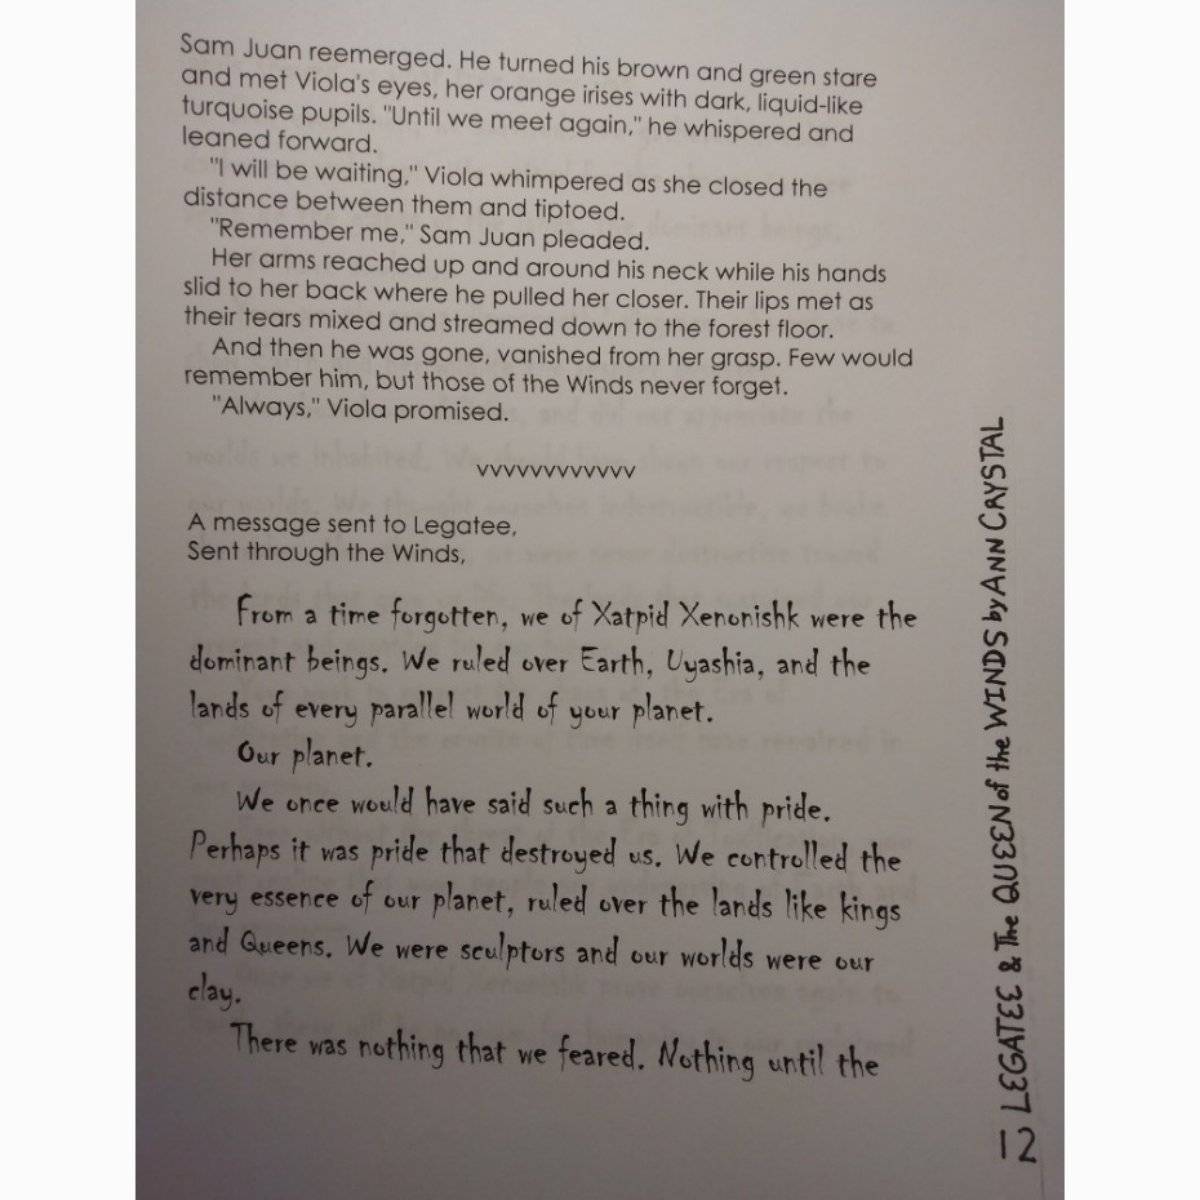 Sam Juan reemerged. He turned his brown and green stare
and met Viola's eyes, her orange irises with dark, liquid-like
turquoise pupils. "Until we meet again," he whispered and
leaned forward.
"I will be waiting," Viola whimpered as she closed the
distance between them and tiptoed.
"Remember me," Sam Juan pleaded.
Her arms reached up and around his neck while his hands
slid to her back where he pulled her closer. Their lips met as
their tears mixed and streamed down to the forest floor.
And then he was gone, vanished from her grasp. Few would
remember him, but those of the Winds never forget.
"Always," Viola promised.
vvvvvvvvvvvv
A message sent to Legatee,
Sent through the Winds,
From a time forgotten, we of Xatpid Xenonishk were the
dominant beings. We ruled over Earth, Uyashia, and the
lands of every parallel world of your planet.
Our planet.
We once would have said such a thing with pride.
Perhaps it was pride that destroyed us. We controlled the
very essence of our planet, ruled over the lands like kings
and Queens. We were sculptors and our worlds were our
clay.
There was nothing that we feared. Nothing until the
12 LEGATEE & The QUEEN of the WINDS by ANN CRYSTAL